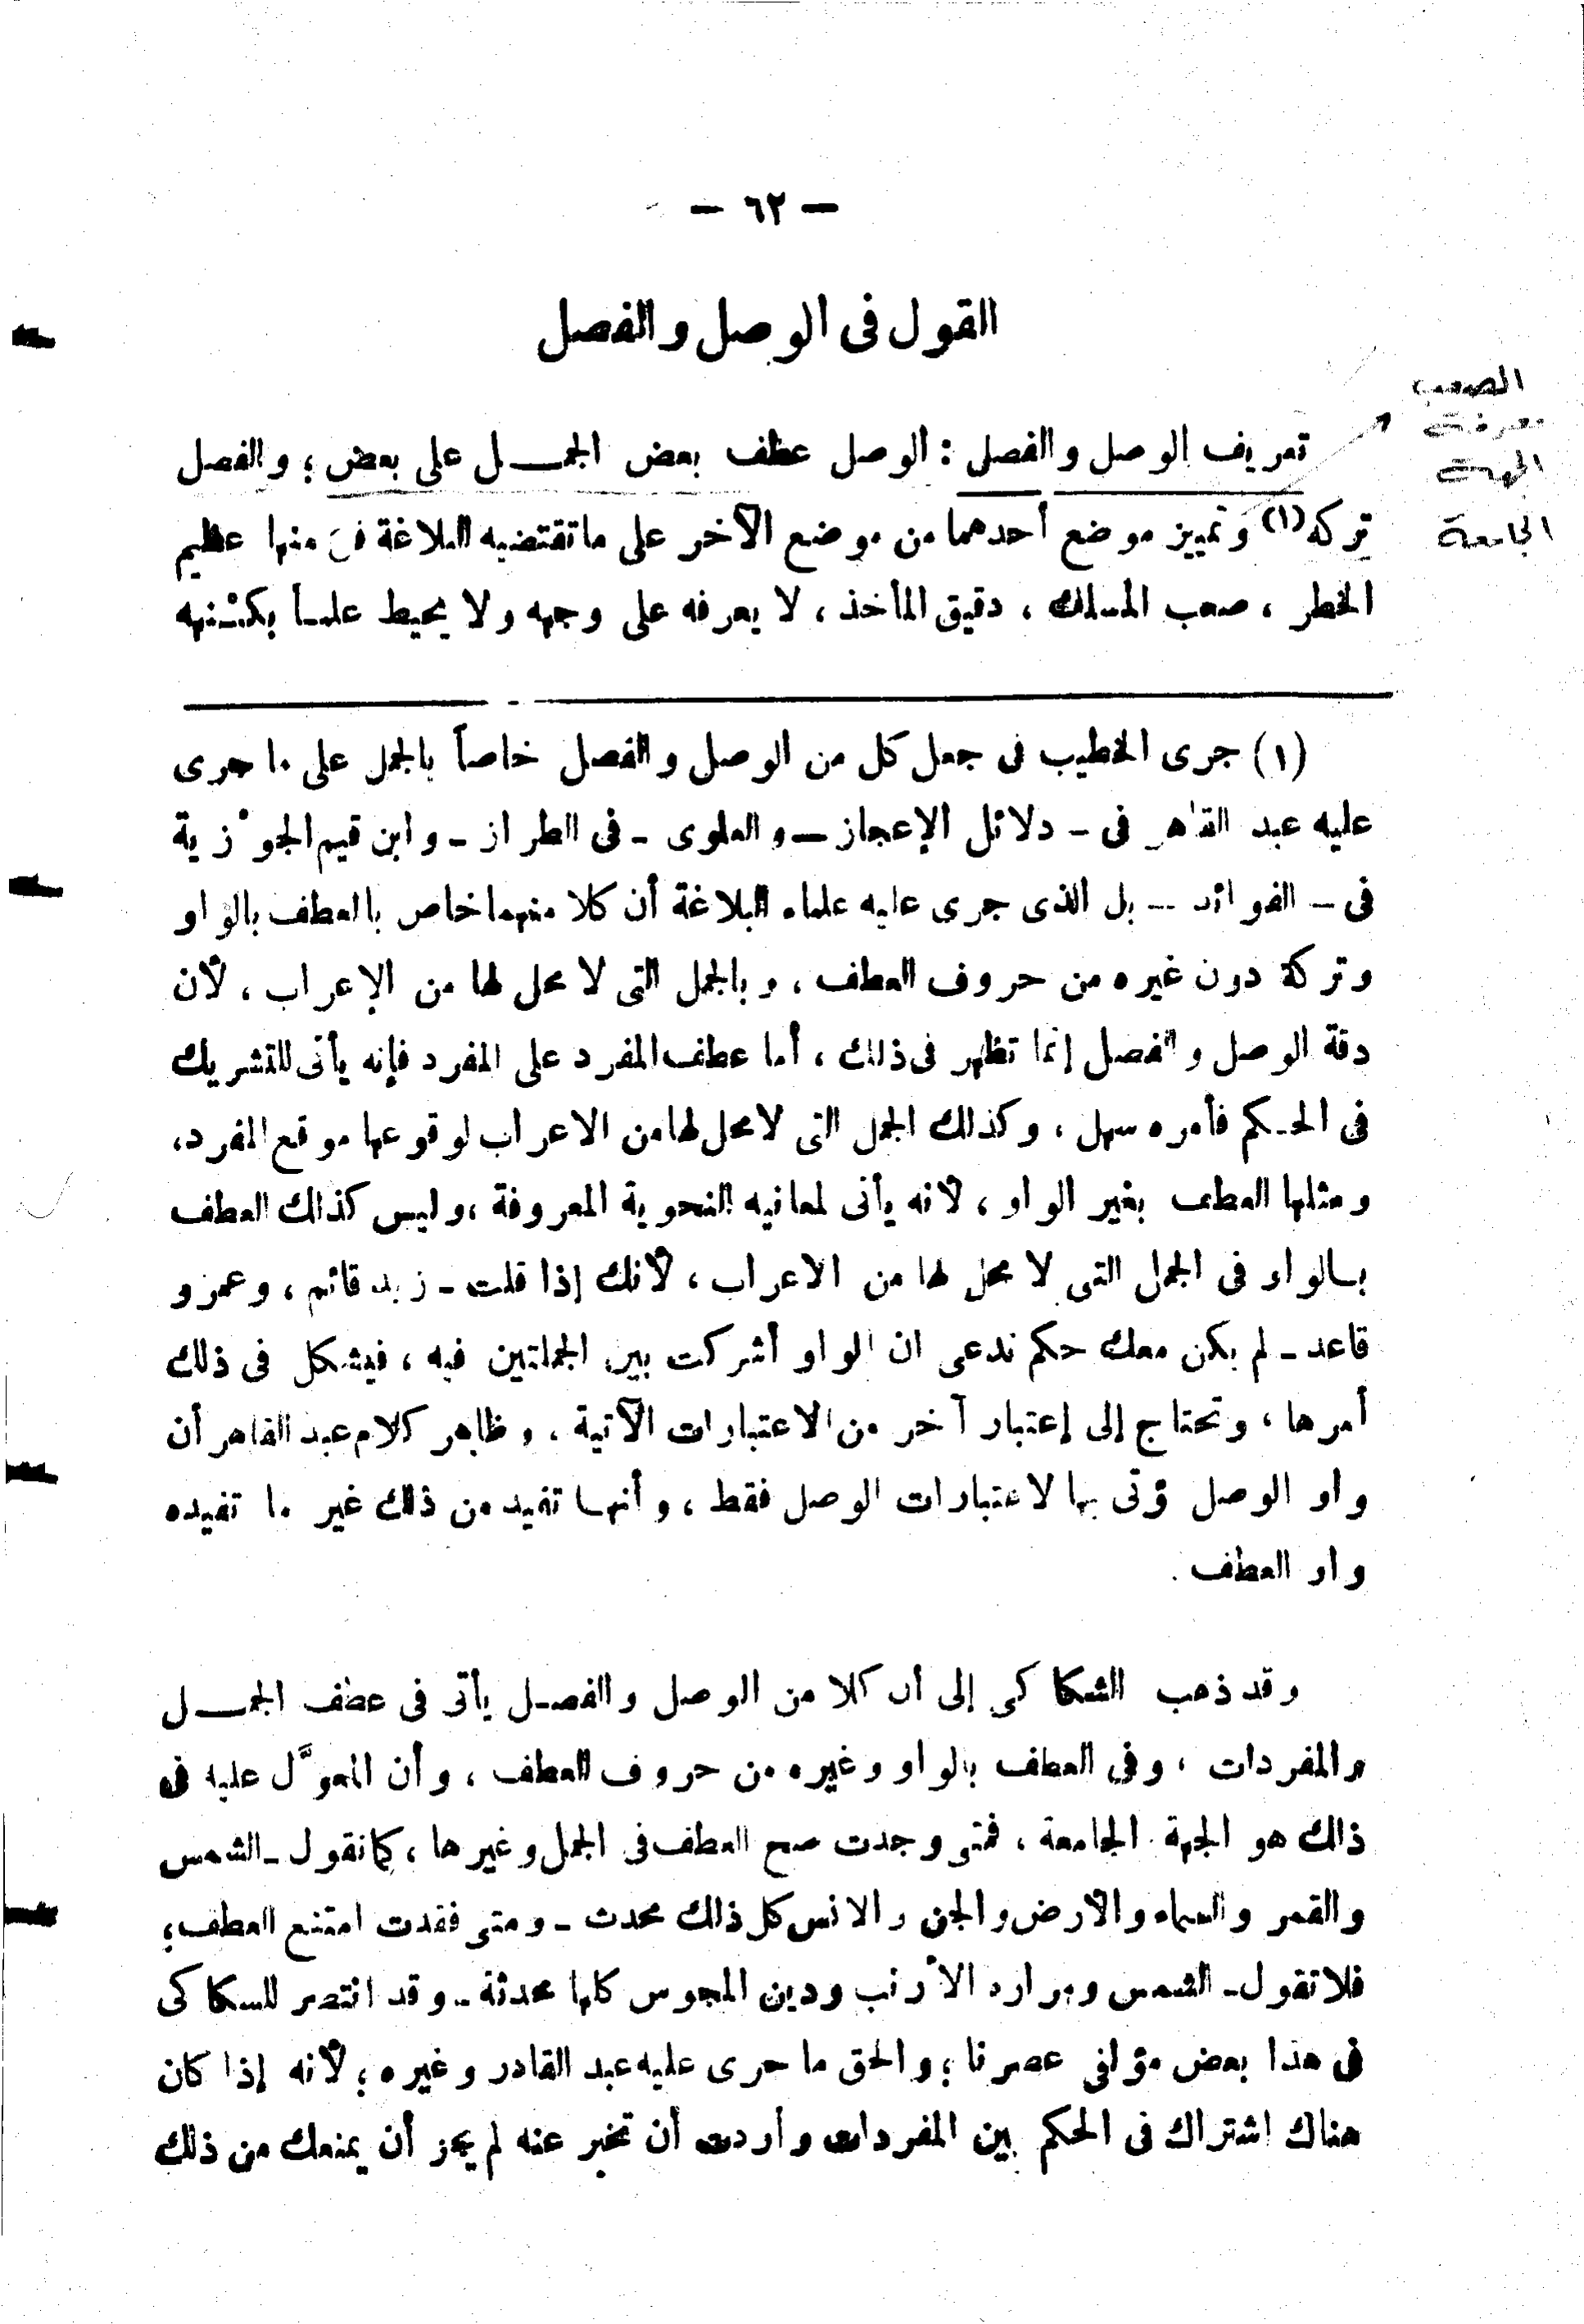 — ٦٢ —
القول فى الوصل والفصل
الصعب
معرفة
الجهة
الجامعة
تعريف الوصل والفصل : الوصل عطف بعض الجمل على بعض ؛ والفصل
تركه (١) وتمييز موضع أحدهما من موضع الآخر على ما تقتضيه البلاغة فن منها عظيم
الخطر ، صعب المسلك ، دقيق المأخذ ، لا يعرفه على وجهه ولا يحيط علما بكنهه
(١) جرى الخطيب فى جعل كل من الوصل والفصل خاصاً بالجمل على ما جرى
عليه عبد القاهر فى - دلائل الإعجاز - والعلوى - فى الطراز - وابن قيم الجوزية
فى - الفوائد - بل الذى جرى عليه علماء البلاغة أن كلا منهما خاص بالعطف بالواو
وتركة دون غيره من حروف العطف ، وبالجمل التى لا محل لها من الإعراب ، لأن
دقة الوصل والفصل إنما تظهر فى ذلك ، أما عطف المفرد على المفرد فإنه يأتى للتشريك
فى الحكم فأمره سهل ، وكذلك الجمل التى لا محل لها من الاعراب لوقوعها موقع المفرد،
ومثلها العطف بغير الواو ، لانه يأتى لمعانيه النحوية المعروفة ، وليس كذلك العطف
بالواو فى الجمل التى لا محل لها من الاعراب ، لأنك إذا قلت - زيد قائم ، وعمرو
قاعد - لم يكن معك حكم ندعى ان الواو أشركت بين الجملتين فيه ، فيشكل فى ذلك
أمرها ، وتحتاج إلى إعتبار آخر من الاعتبارات الآتية . وظاهر كلام عبد القاهر أن
واو الوصل يؤتى بها لاعتبارات الوصل فقط ، وأنها تفيد من ذلك غير ما تفيده
واو العطف .
وقد ذهب السكاكى إلى أن كلا من الوصل والفصل يأتى فى عطف الجمل
والمفردات ، وفى العطف بالواو وغيره من حروف العطف ، وأن المعوَّل عليه فى
ذلك هو الجهة الجامعة ، فمتى وجدت صح العطف فى الجمل وغيرها ، كما نقول - الشمس
والقمر والسماء والأرض والجن والانس كل ذلك محدث - ومتى فقدت امتنع العطف ؛
فلا تقول - الشمس ومرارة الأرنب ودين المجوس كلها محدثة - وقد انتصر للسكاكى
فى هذا بعض مؤلفى عصرنا ؛ والحق ما جرى عليه عبد القادر وغيره ؛ لأنه إذا كان
هناك اشتراك فى الحكم بين المفردات وأردت أن تخبر عنه لم يجز أن يمنعك من ذلك